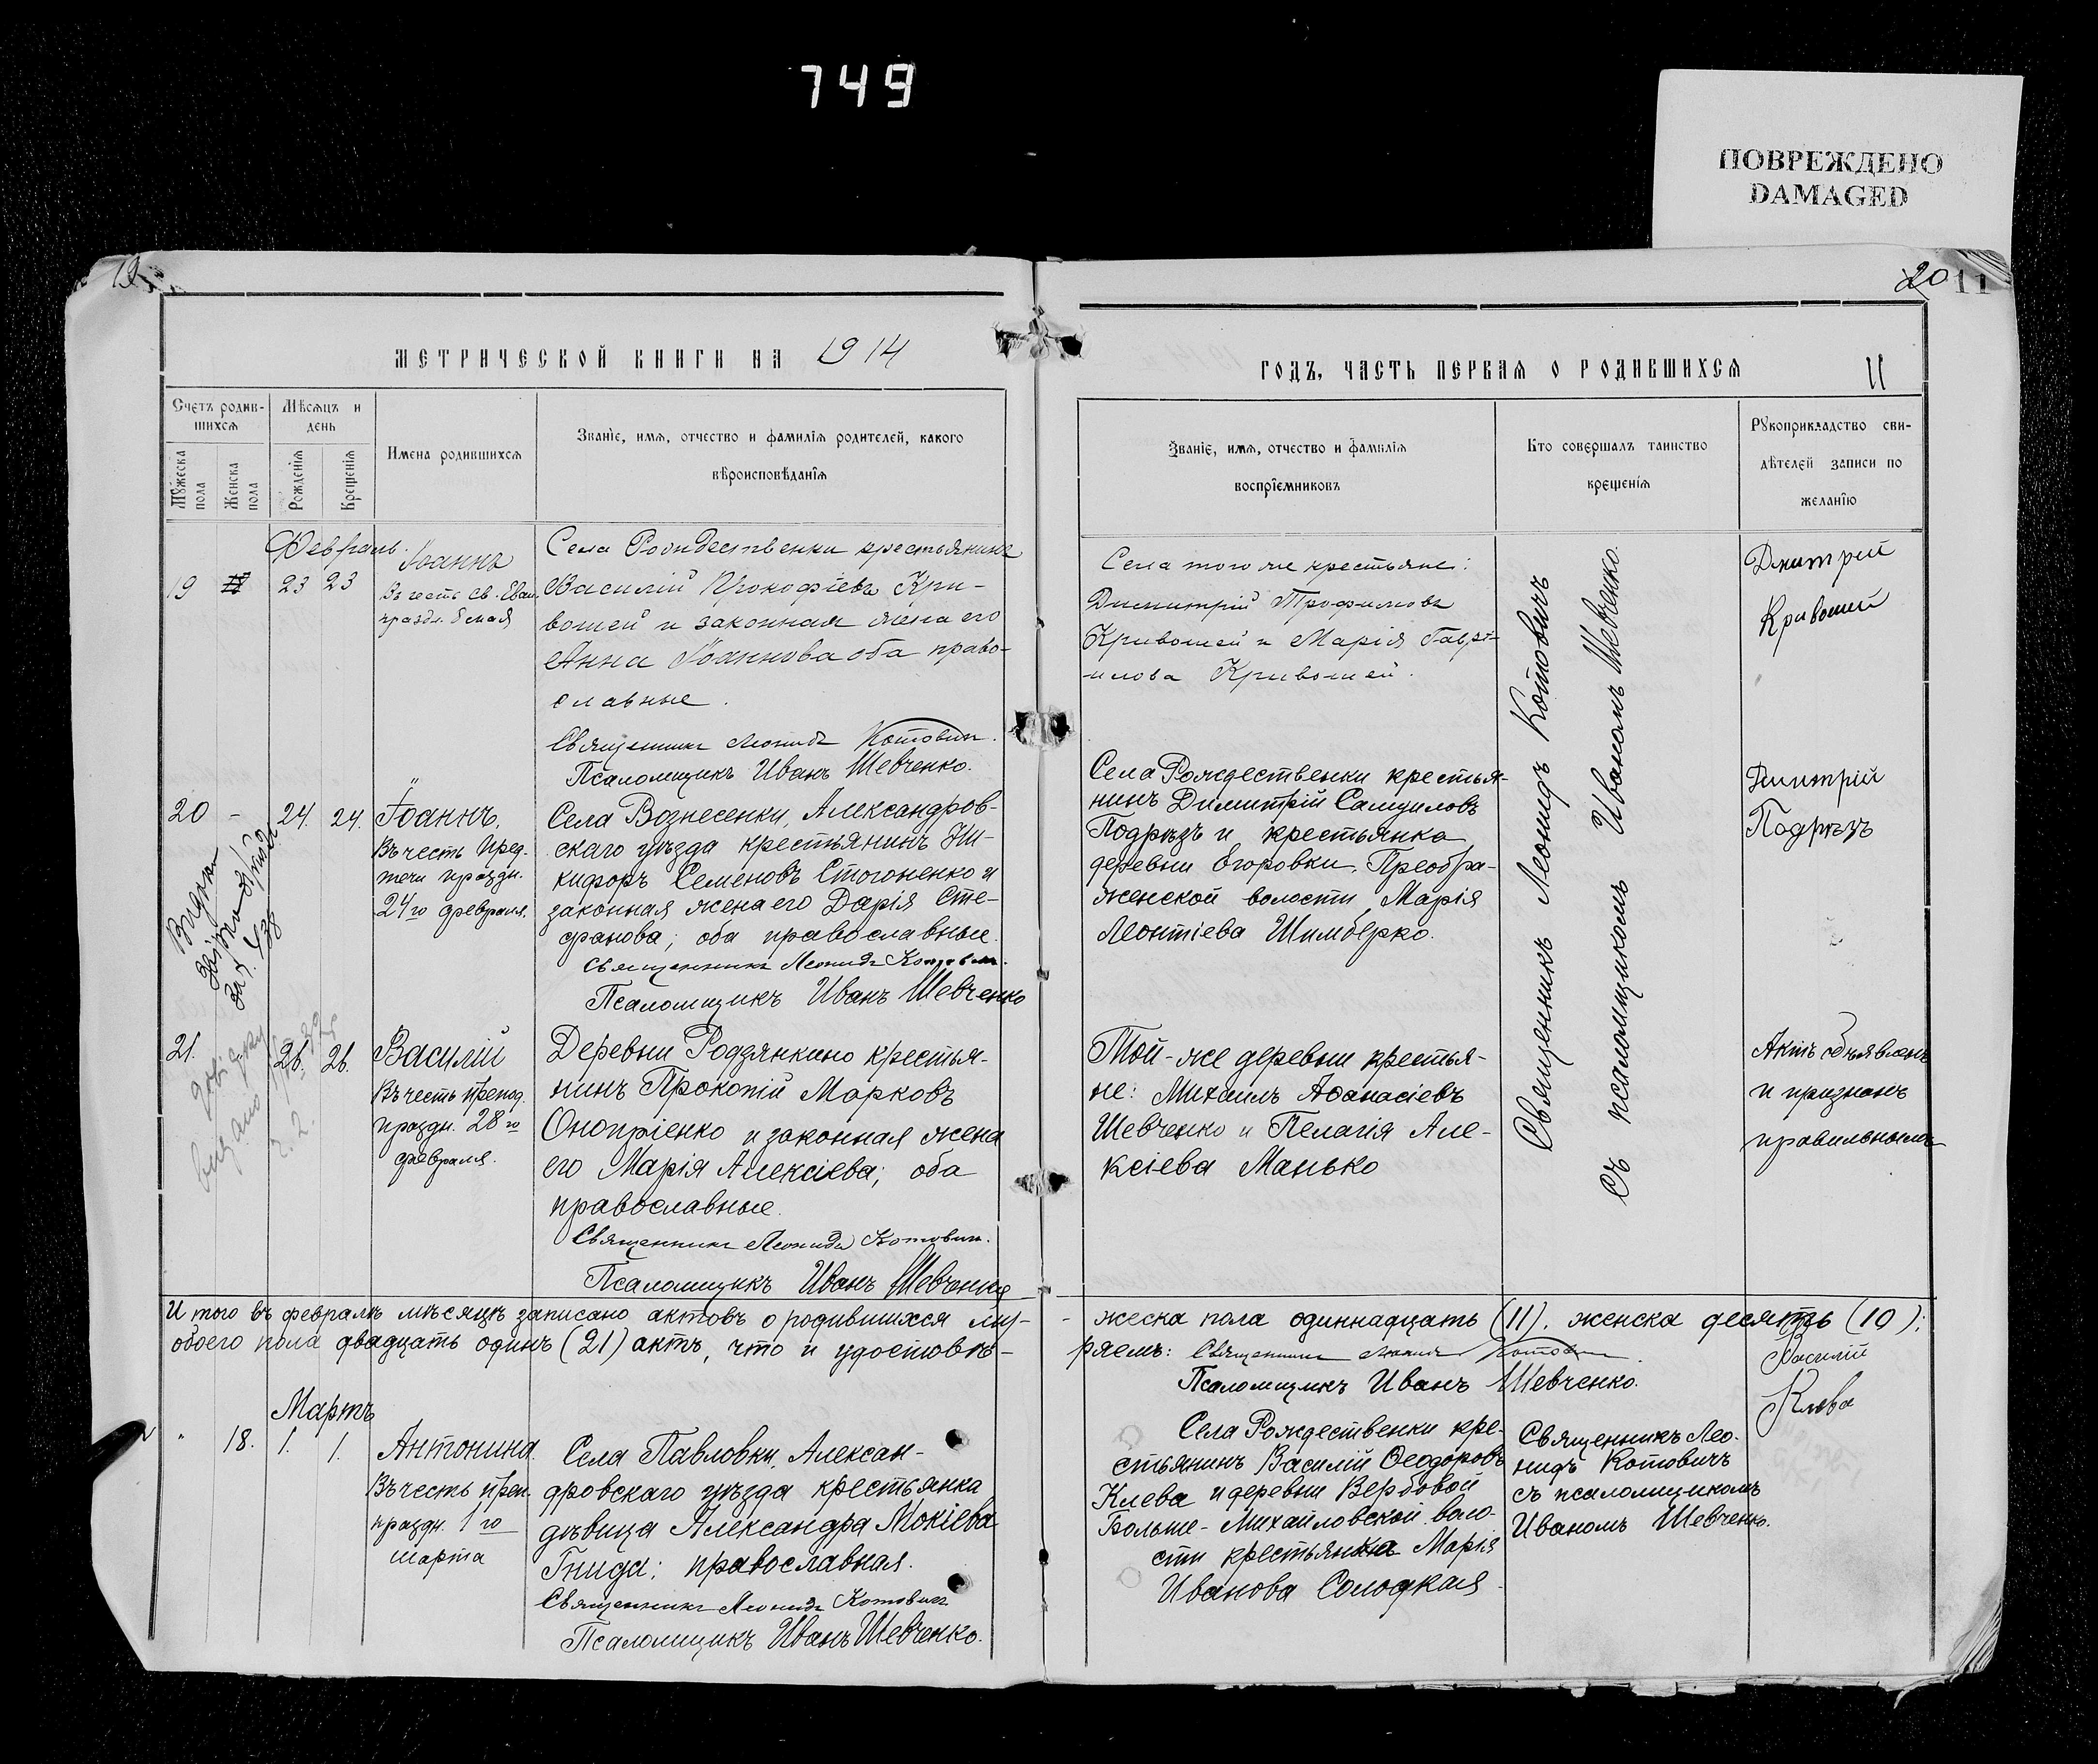 749
ПОВРЕЖДЕНО
DAMAGED
19
20 11
МЕТРИЧЕСКОЙ КНИГИ НА 1914
ГОДЪ, ЧАСТЬ ПЕРВАЯ О РОДИВШИХСЯ
11
Счетъ родив-
шихся
Мужеска пола
Женска пола
Мѣсяцъ и
день
Рожденія
Крещенія
Имена родившихся
Званіе, имя, отчество и фамилія родителей, какого
вѣроисповѣданія
Званіе, имя, отчество и фамилія
воспріемниковъ
Кто совершалъ таинство
крещенія
Рукоприкладство сви-
дѣтелей записи по
желанію
Февраль.
19 23 23
Іоаннъ
Въ честь св. Еван.
праздн. 8 мая
Села Рождественки крестьянинъ
Василій Прокофіевъ Кри-
вошей и законная жена его
Анна Іоаннова оба право-
славные.
Священникъ Леонидъ Котовичъ.
Псаломщикъ Иванъ Шевченко.
Села того же крестьяне:
Димитрій Трофимовъ
Кривошей и Марія Гаврі-
илова Кривошей.
Священникъ Леонидъ Котовичъ
съ псаломщикомъ Иваномъ Шевченко.
Дмитрій
Кривошей
"
20 - 24. 24.
Іоаннъ.
Въ честь Пред-
течи праздн.
24го февраля.
Села Вознесенки, Александров-
скаго уѣзда крестьянинъ Ни-
кифоръ Семеновъ Стогоненко и
законная жена его Дарія Сте-
фанова; оба православные.
Священникъ Леонидъ Котовичъ.
Псаломщикъ Иванъ Шевченко
Села Рождественки крестья-
нинъ Димитрій Самуиловъ
Подрѣзъ и крестьянка
деревни Егоровки, Преобра-
женской волости, Марія
Леонтіева Шимберко.
Димитрій
Подрѣзъ
21. 26. 26.
Василій
Въ честь препод.
праздн. 28го
февраля.
Деревни Родзянкино крестья-
нинъ Прокопій Марковъ
Онопріенко и законная жена
его Марія Алексіева; оба
православные.
Священникъ Леонидъ Котовичъ.
Псаломщикъ Иванъ Шевченко
Той-же деревни крестья-
не: Михаилъ Аѳанасіевъ
Шевченко и Пелагія Але-
ксіева Манько
Актъ объявленъ
и признанъ
правильнымъ
И того въ февралѣ мѣсяцѣ записано актовъ о родившихся му-
- жеска пола одиннадцать (11), женска десять (10);
обоего пола двадцать одинъ (21) актъ, что и удостовѣ-
ряемъ: Священникъ Леонидъ Котовичъ.
Псаломщикъ Иванъ Шевченко.
Мартъ
" 18. 1. 1.
Антонина.
Въ честь преп.
праздн. 1го
марта
Села Павловки, Алексан-
дровскаго уѣзда крестьянка
дѣвица Александра Мокіева
Гнида; православная.
Священникъ Леонидъ Котовичъ
Псаломщикъ Иванъ Шевченко.
Села Рождественки кре-
стьянинъ Василій Ѳеодоровъ
Клева и деревни Вербовой
Больше-Михайловской воло-
сти крестьянка Марія
Иванова Солодкая.
Священникъ Лео-
нидъ Котовичъ
съ псаломщикомъ
Иваномъ Шевченко.
Василій
Клева